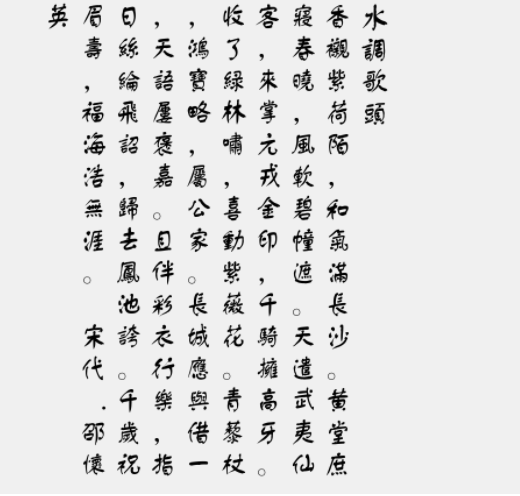 水調歌頭
香襯紫荷陌，和氣滿長沙。黃堂庶
寢春曉，風軟碧幢遮。天遣武夷仙
客，來掌元戎金印，千騎擁高牙。
收了綠林嘯，喜動紫薇花。青藜杖
，鴻寶略，屬公家。長城應與借一
，天語屢褒嘉。且伴彩衣行樂，指
日絲綸飛詔，歸去鳳池誇。千歲祝
眉壽，福海浩無涯。 宋代．邵懷
英